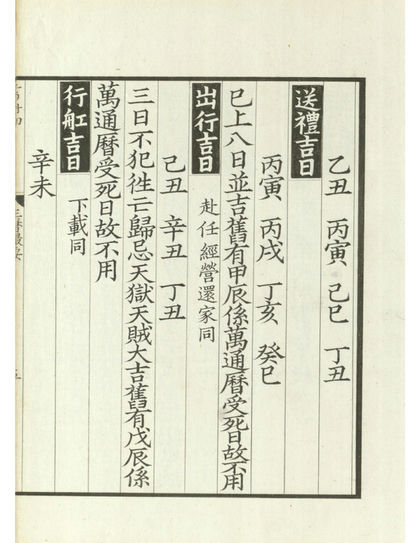 乙丑 丙寅 己巳 丁丑
送禮吉日
丙寅 丙戌 丁亥 癸巳
巳上八日並吉舊有甲辰係萬通曆受死日故不用
出行吉日 赴任經營還家同
己丑 辛丑 丁丑
三日不犯徃亡歸忌天獄天賊大吉舊有戊辰係
萬通曆受死日故不用
行舡吉日 下載同
辛未